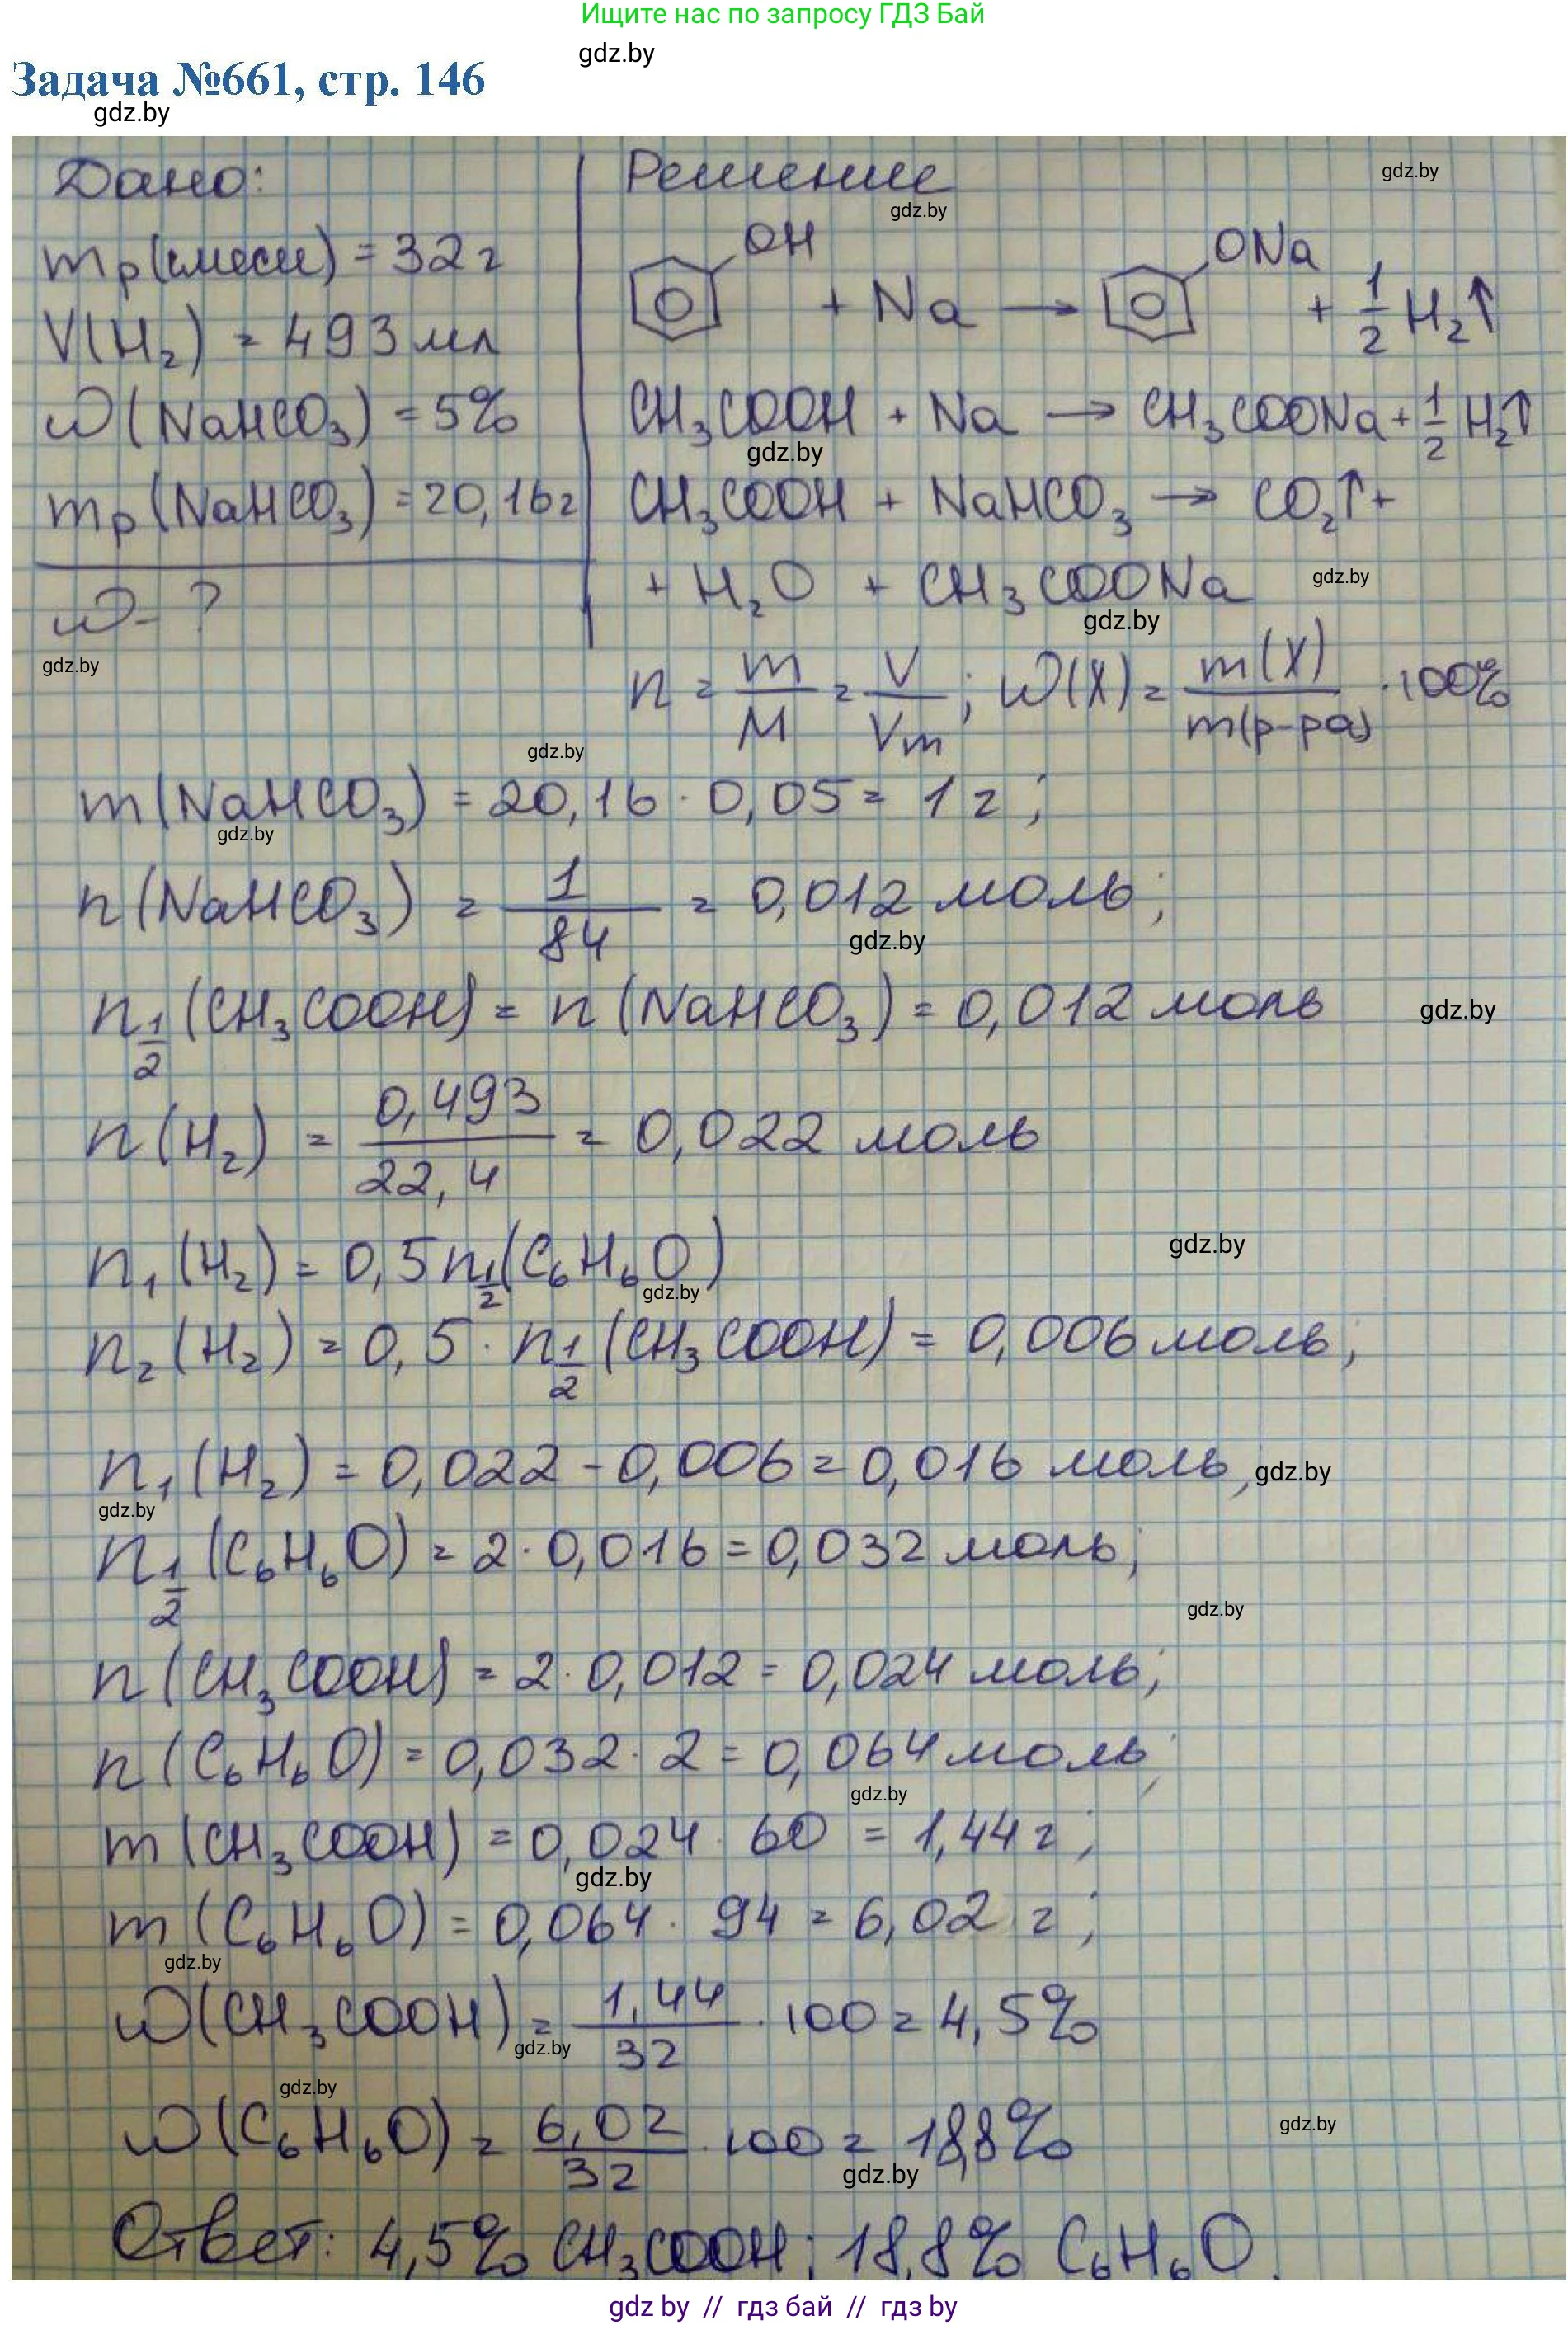 Ищите нас по запросу ГДЗ Бай
gdz.by
Задача №661, стр. 146
gdz.by
Дано:
mр(смеси) = 32 г
V(H₂) = 493 мл
ω(NaHCO₃) = 5%
mр(NaHCO₃) = 20,16 г
ω - ?
gdz.by
Решение
gdz.by
gdz.by
OH + Na → ONa + 1/2 H₂↑
CH₃COOH + Na → CH₃COONa + 1/2 H₂↑
gdz.by
CH₃COOH + NaHCO₃ → CO₂↑ +
+ H₂O + CH₃COONa
gdz.by
gdz.by
n = m/M = V/Vm; ω(X) = m(X)/m(р-ра) · 100%
gdz.by
m(NaHCO₃) = 20,16 · 0,05 = 1 г;
gdz.by
n(NaHCO₃) = 1/84 = 0,012 моль;
gdz.by
n1/2(CH₃COOH) = n(NaHCO₃) = 0,012 моль
gdz.by
n(H₂) = 0,493/22,4 = 0,022 моль
gdz.by
n₁(H₂) = 0,5 n1/2(C₆H₆O)
gdz.by
n₂(H₂) = 0,5 · n1/2(CH₃COOH) = 0,006 моль;
n₁(H₂) = 0,022 - 0,006 = 0,016 моль,
gdz.by
gdz.by
n1/2(C₆H₆O) = 2 · 0,016 = 0,032 моль;
gdz.by
n(CH₃COOH) = 2 · 0,012 = 0,024 моль;
n(C₆H₆O) = 0,032 · 2 = 0,064 моль;
gdz.by
m(CH₃COOH) = 0,024 · 60 = 1,44 г;
gdz.by
m(C₆H₆O) = 0,064 · 94 = 6,02 г;
gdz.by
ω(CH₃COOH) = 1,44/32 · 100 = 4,5%
gdz.by
gdz.by
ω(C₆H₆O) = 6,02/32 · 100 = 18,8%
gdz.by
gdz.by
Ответ: 4,5% CH₃COOH; 18,8% C₆H₆O.
gdz by // гдз бай // гдз by